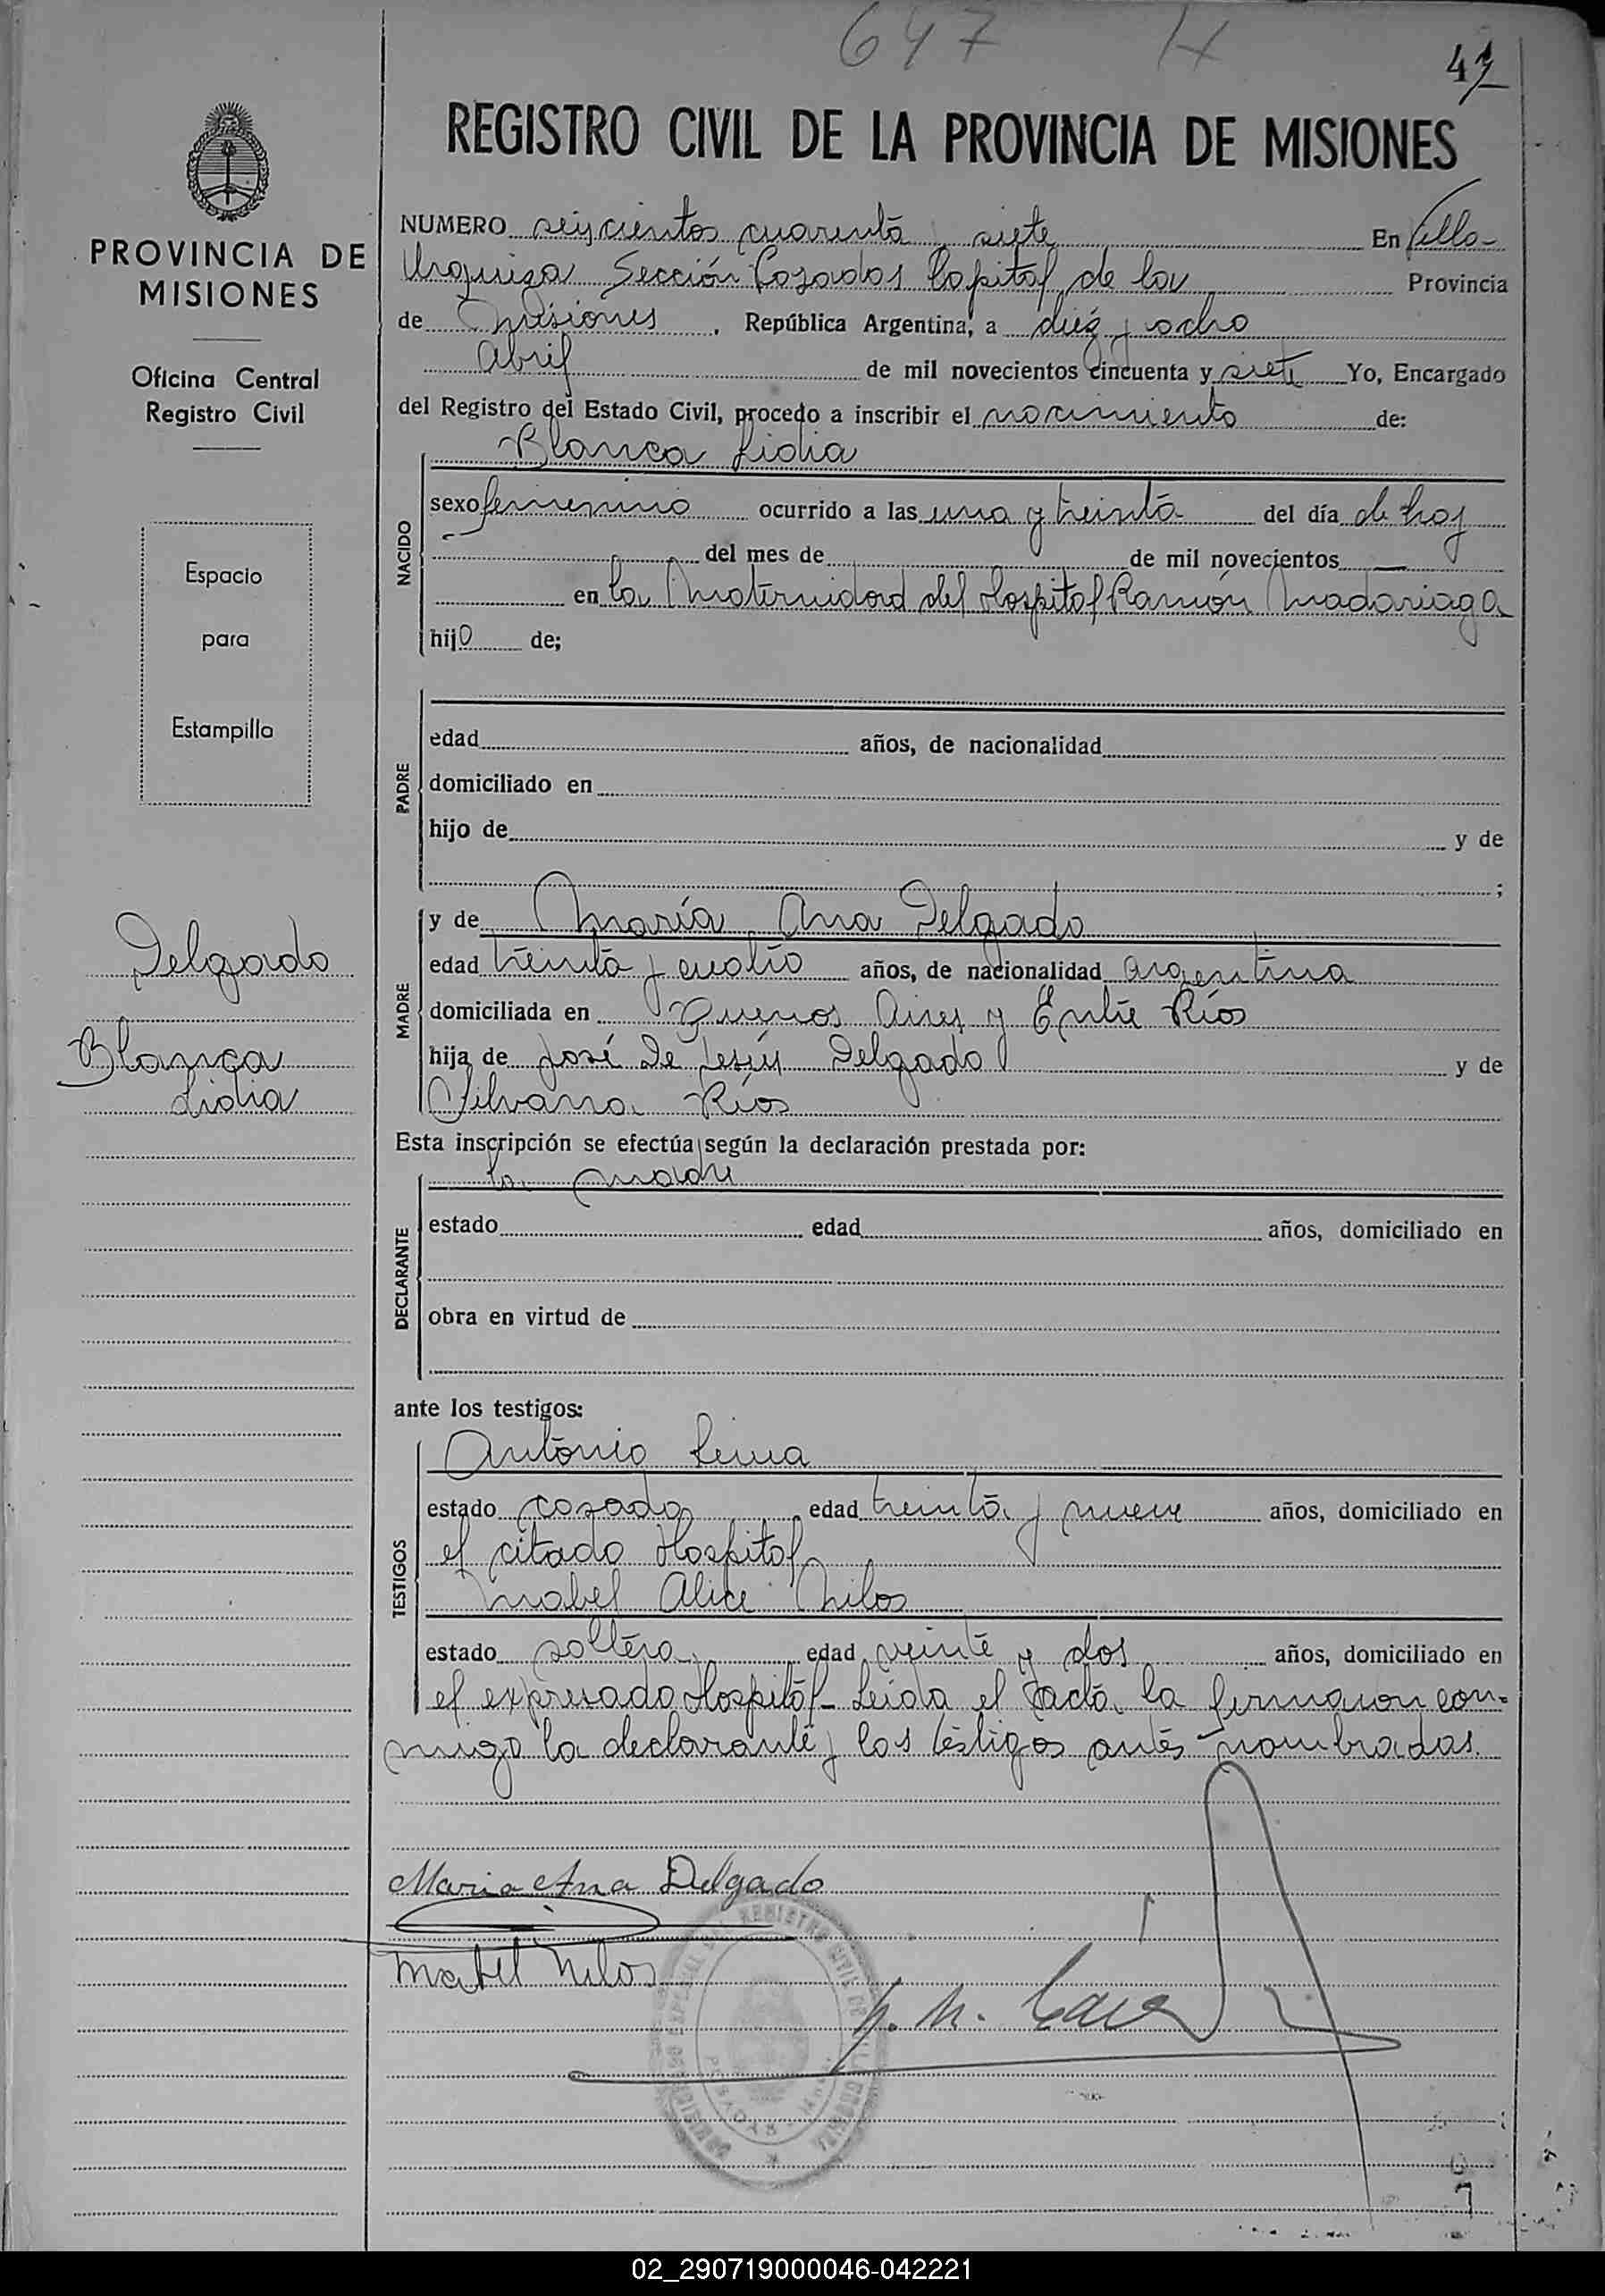 647
REGISTRO CIVIL DE LA PROVINCIA DE MISIONES
PROVINCIA DE
MISIONES
Oficina Central
Registro Civil
Espacio
para
Estampilla
Delgado
Blanca
Lidia
NUMERO seiscientos cuarenta y siete En Villa
Urquiza Sección Posadas Capital de la Provincia
de Misiones, República Argentina, a diez y ocho
Abril de mil novecientos cincuenta y siete Yo, Encargado
del Registro del Estado Civil, procedo a inscribir el nacimiento de:
Blanca Lidia
NACIDO
sexo femenino ocurrido a las una y treinta del día de hoy
del mes de de mil novecientos
en la Maternidad del Hospital Ramón Madariaga
hija de;
PADRE
edad años, de nacionalidad
domiciliado en
hijo de y de
;
MADRE
y de María Ana Delgado
edad treinta y cuatro años, de nacionalidad argentina
domiciliada en Buenos Aires y Entre Ríos
hija de José De Jesús Delgado y de
Silvana Ríos
Esta inscripción se efectúa según la declaración prestada por:
la madre
DECLARANTE
estado edad años, domiciliado en
obra en virtud de
ante los testigos:
TESTIGOS
Antonio Leiva
estado casado edad treinta y nueve años, domiciliado en
el citado Hospital
Mabel Alice Milos
estado soltera edad veinte y dos años, domiciliado en
el expresado Hospital - Leida el acta, la firmaron con-
migo la declarante y los testigos antes nombrados.
Maria Ana Delgado
Mabel Milos
02_290719000046-042221